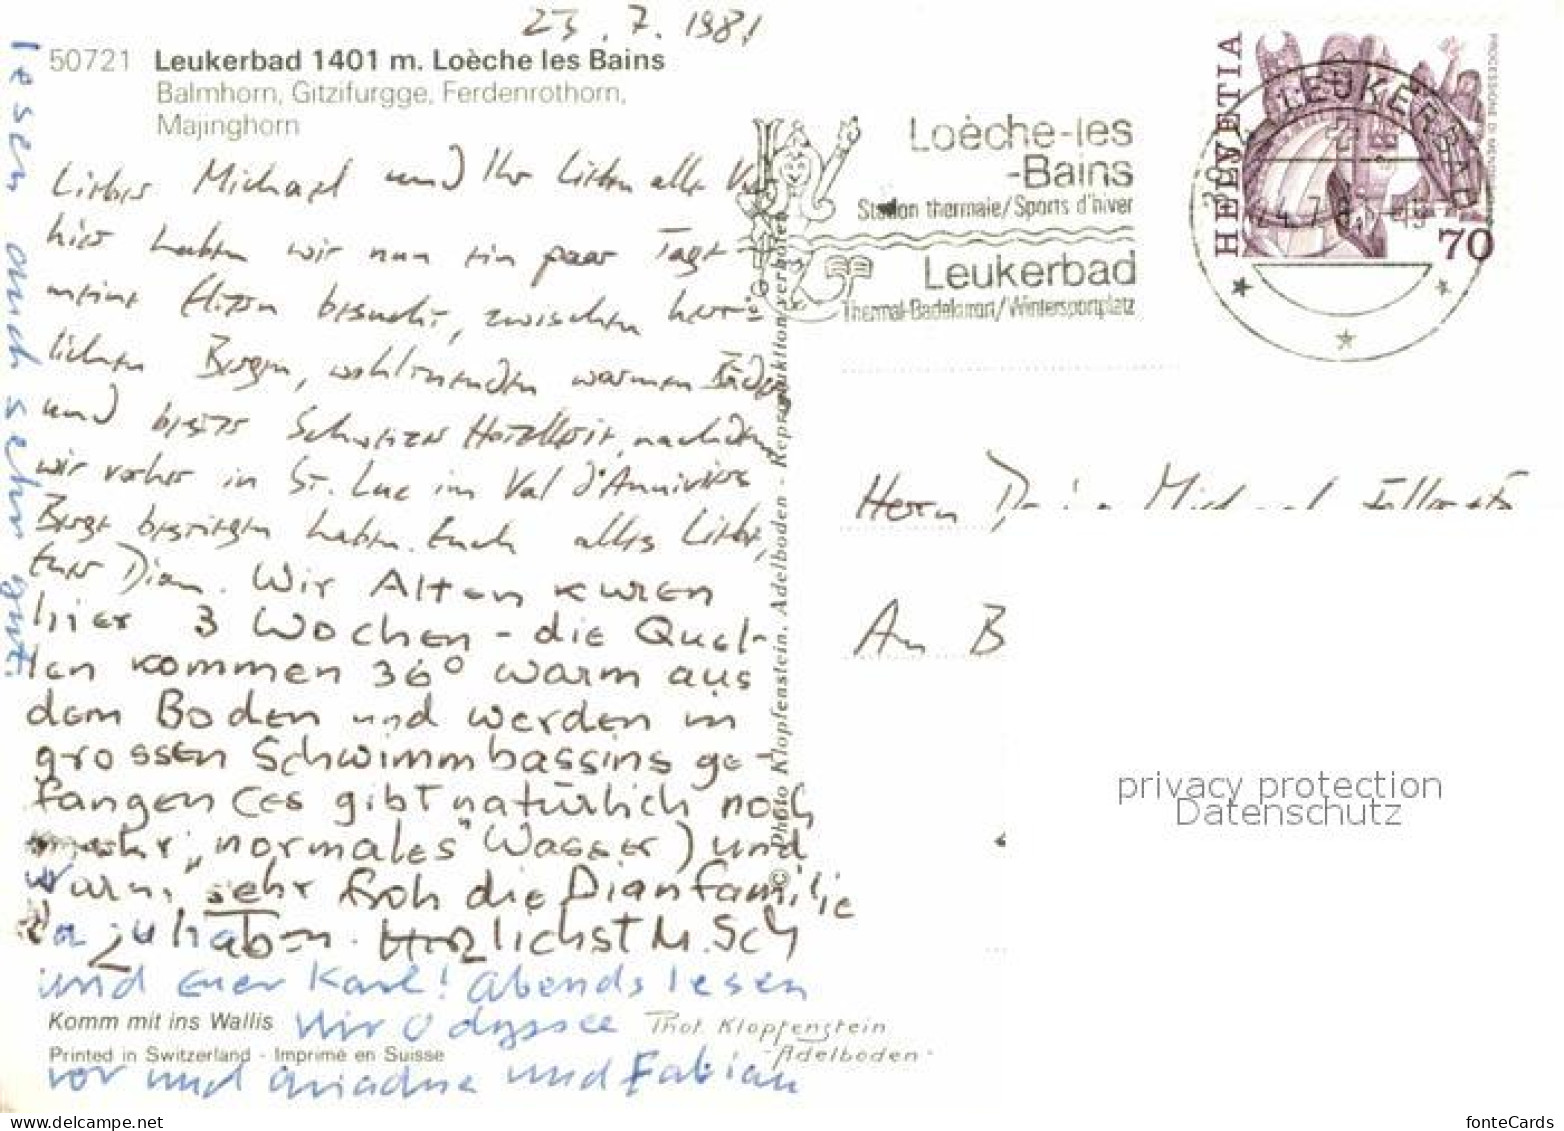 23.7.1981
50721 Leukerbad 1401 m. Loèche les Bains
Balmhorn, Gitzifurgge, Ferdenrothorn,
Majinghorn
Lieber Michael und Ihr Lieben alle
hier haben wir nun ein paar Tage
meine Eltern besucht, zwischen herr-
lichen Bergen, wohltuenden warmen Bädern
und bester Schweizer Herzlichkeit, nachdem
wir vorher in St. Luc im Val d'Anniviers
Berge bestiegen haben. Euch alles Liebe,
Euer Dian. Wir Alten kuren
hier 3 Wochen - die Quel-
len kommen 36° warm aus
dem Boden und werden in
grossen Schwimmbassins ge-
fangen (es gibt natürlich noch
mehr "normales" Wasser) und
warn. sehr froh die Dianfamilie
da zu haben. Herzlichst M. Sch
und euer Karl! abends lesen
wir Odyssee
vor und Ariadne und Fabian
lesen auch sehr gut.
Komm mit ins Wallis
Phot. Klopfenstein
-Adelboden-
Printed in Switzerland - Imprimé en Suisse
© Photo Klopfenstein, Adelboden - Reproduktion verboten
Loèche-les
-Bains
Station thermale/Sports d'hiver
Leukerbad
Thermal-Badekurort/Wintersportplatz
HELVETIA
70
LEUKERBAD
Herrn Michael
An B
privacy protection
Datenschutz
www.delcampe.net
fonteCards